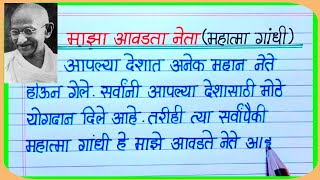 माझा आवडता नेता (महात्मा गांधी)
आपल्या देशात अनेक महान नेते
होऊन गेले. सर्वांनी आपल्या देशासाठी मोठे
योगदान दिले आहे. तरीही त्या सर्वांपैकी
महात्मा गांधी हे माझे आवडते नेते